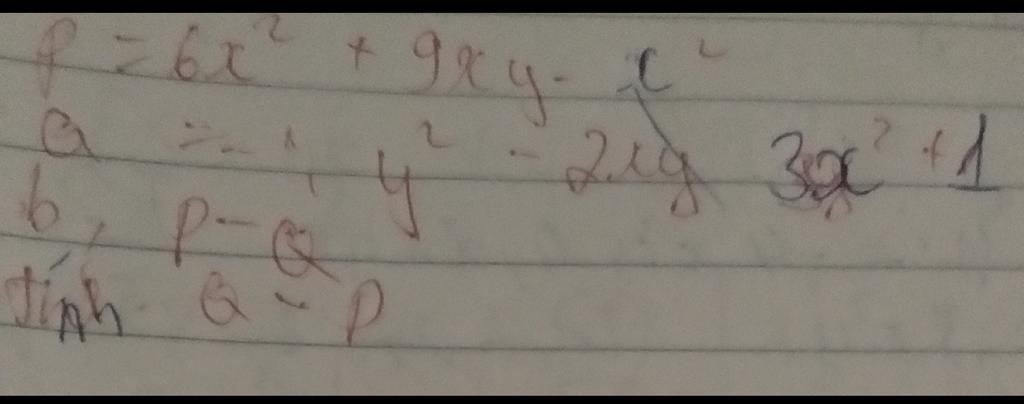 P = 6x² + 9xy - x²
Q = - y² - 2xy 3x² + 1
b, P - Q
tính Q - P